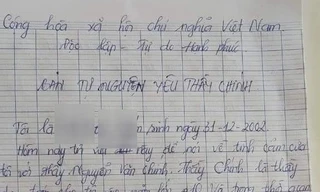 Cộng hòa xã hội chủ nghĩa Việt Nam
Độc lập - Tự do Hạnh phúc
BẢN TỰ NGUYỆN YÊU THẦY CHỈNH
Tôi là sinh ngày 31-12-2002
Hôm nay tôi viết này để nói về tình cảm của
tôi với thầy Nguyễn Văn Chỉnh. Thầy Chỉnh là thầy